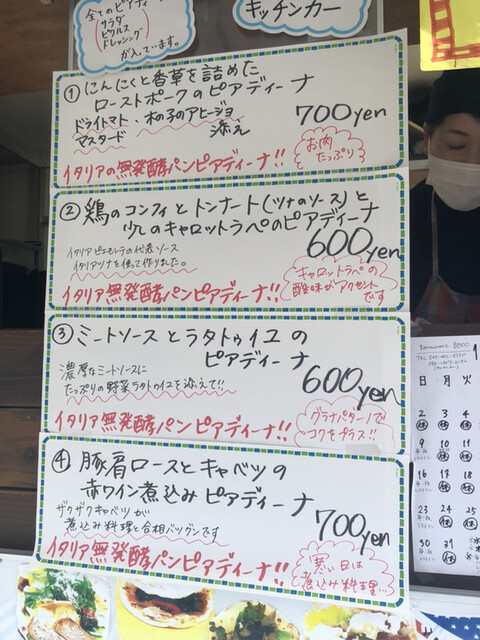 全てのピアディーナ
サラダ
ピクルス
ドレッシング
が入っています。
キッチンカー
① にんにくと香草を詰めた
ローストポークのピアディーナ
ドライトマト、木の子のアヒージョ
マスタード 添え
700yen
お肉
たっぷり
イタリアの無発酵パンピアディーナ!!
② 鶏のコンフィとトンナート(ツナのソース)と
少しのキャロットラペのピアディーナ
600yen
イタリアピエモンテの代表ソース
イタリアツナを使って作りました。
キャロットラペの
酸味がアクセント
です
イタリア無発酵パンピアディーナ!!
③ ミートソースとラタトゥイユの
ピアディーナ
600yen
濃厚なミートソースに
たっぷりの野菜ラタトゥイユを添えて!!
グラナパダーノで
コクをプラス!!
イタリア無発酵パンピアディーナ!!
④ 豚肩ロースとキャベツの
赤ワイン煮込みピアディーナ
700yen
ザクザクキャベツが
煮込み料理と相性バツグンです
寒い日は
煮込み料理…
イタリア無発酵パンピアディーナ!!
日 月 火
2 3 4
休 休 休
9 10 11
休 休
16 17 18
休 休
23 24 25
休 休
30 31
休